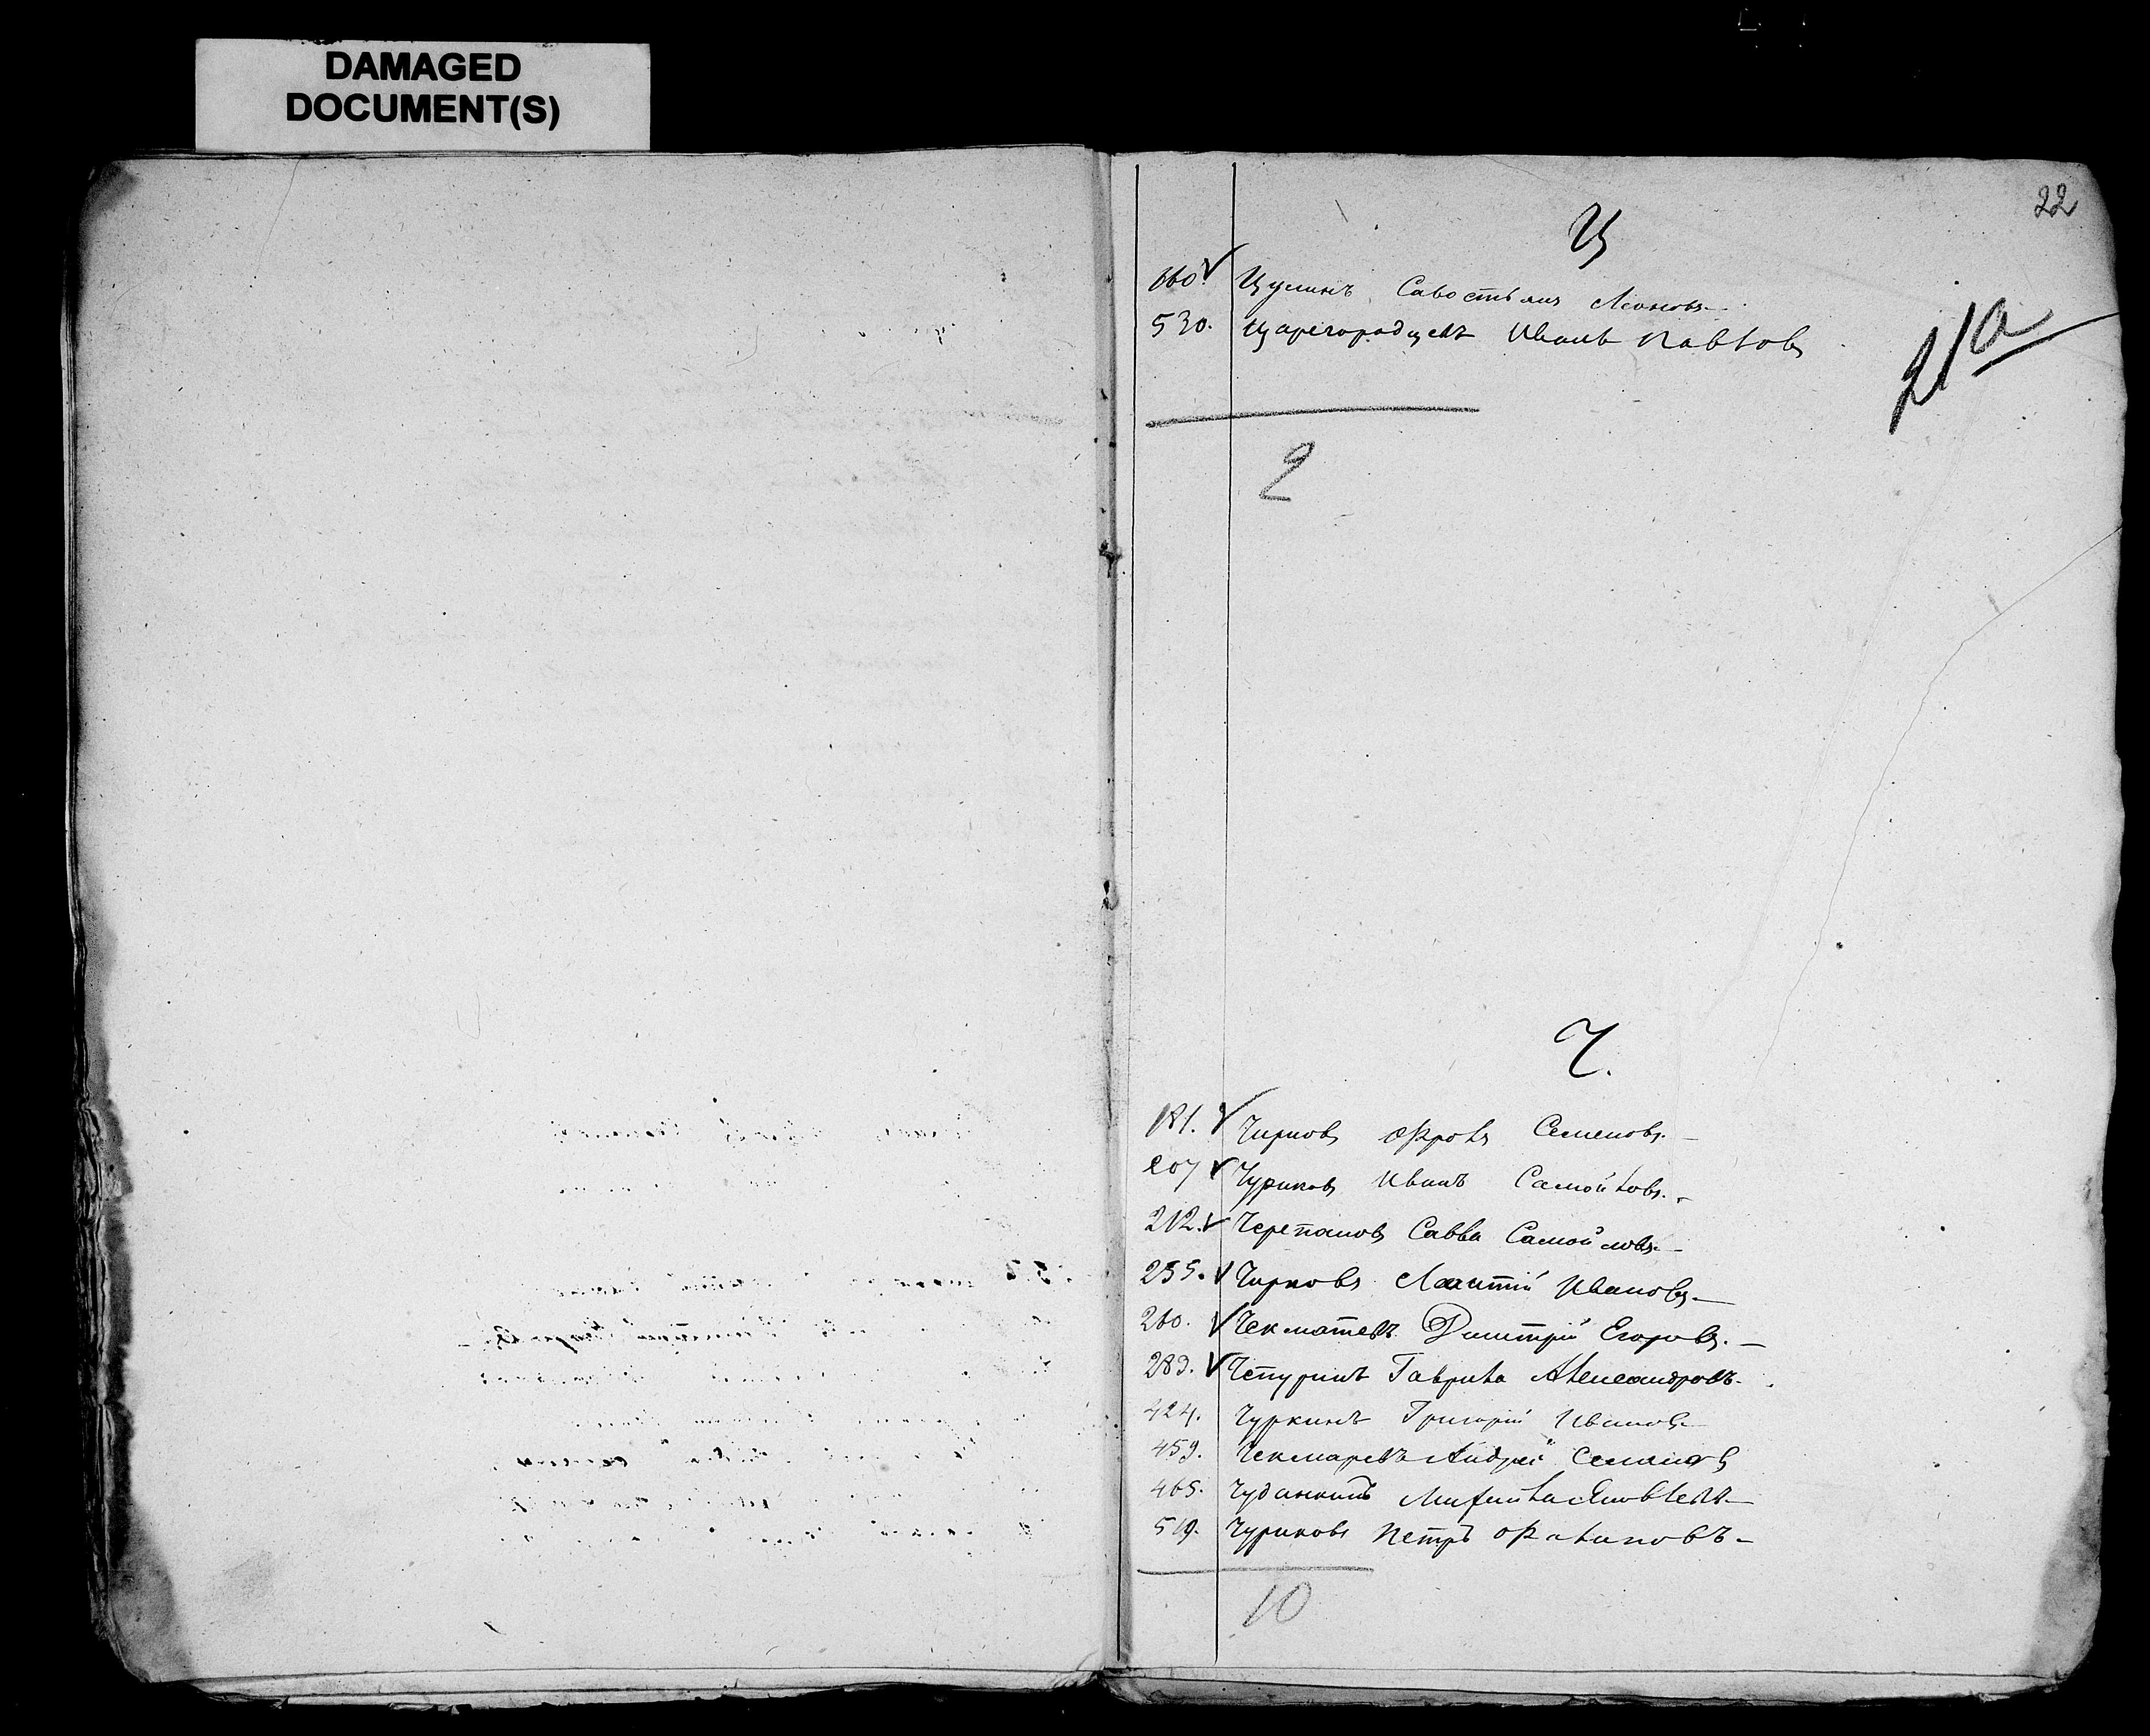 DAMAGED
DOCUMENT(S)
22
Ц
160. Цулинъ Савостьян
530. Царегородцевъ Иванъ Павловъ
21а
2
Ч.
181. Чирковъ Фролъ Семеновъ.
207 Чуриковъ Иванъ Самойловъ.
212. Черепановъ Савва Самойловъ.
255. Чирковъ Ивановъ.
260. Дмитрій Егоровъ.
283. Чепуринъ Гаврила Александровъ.
424. Чуркинъ Григорій Ивановъ
459. Чекмаревъ Андрей Семеновъ
465. Яковлевъ
519. Чуриковъ Петръ Филиповъ
10